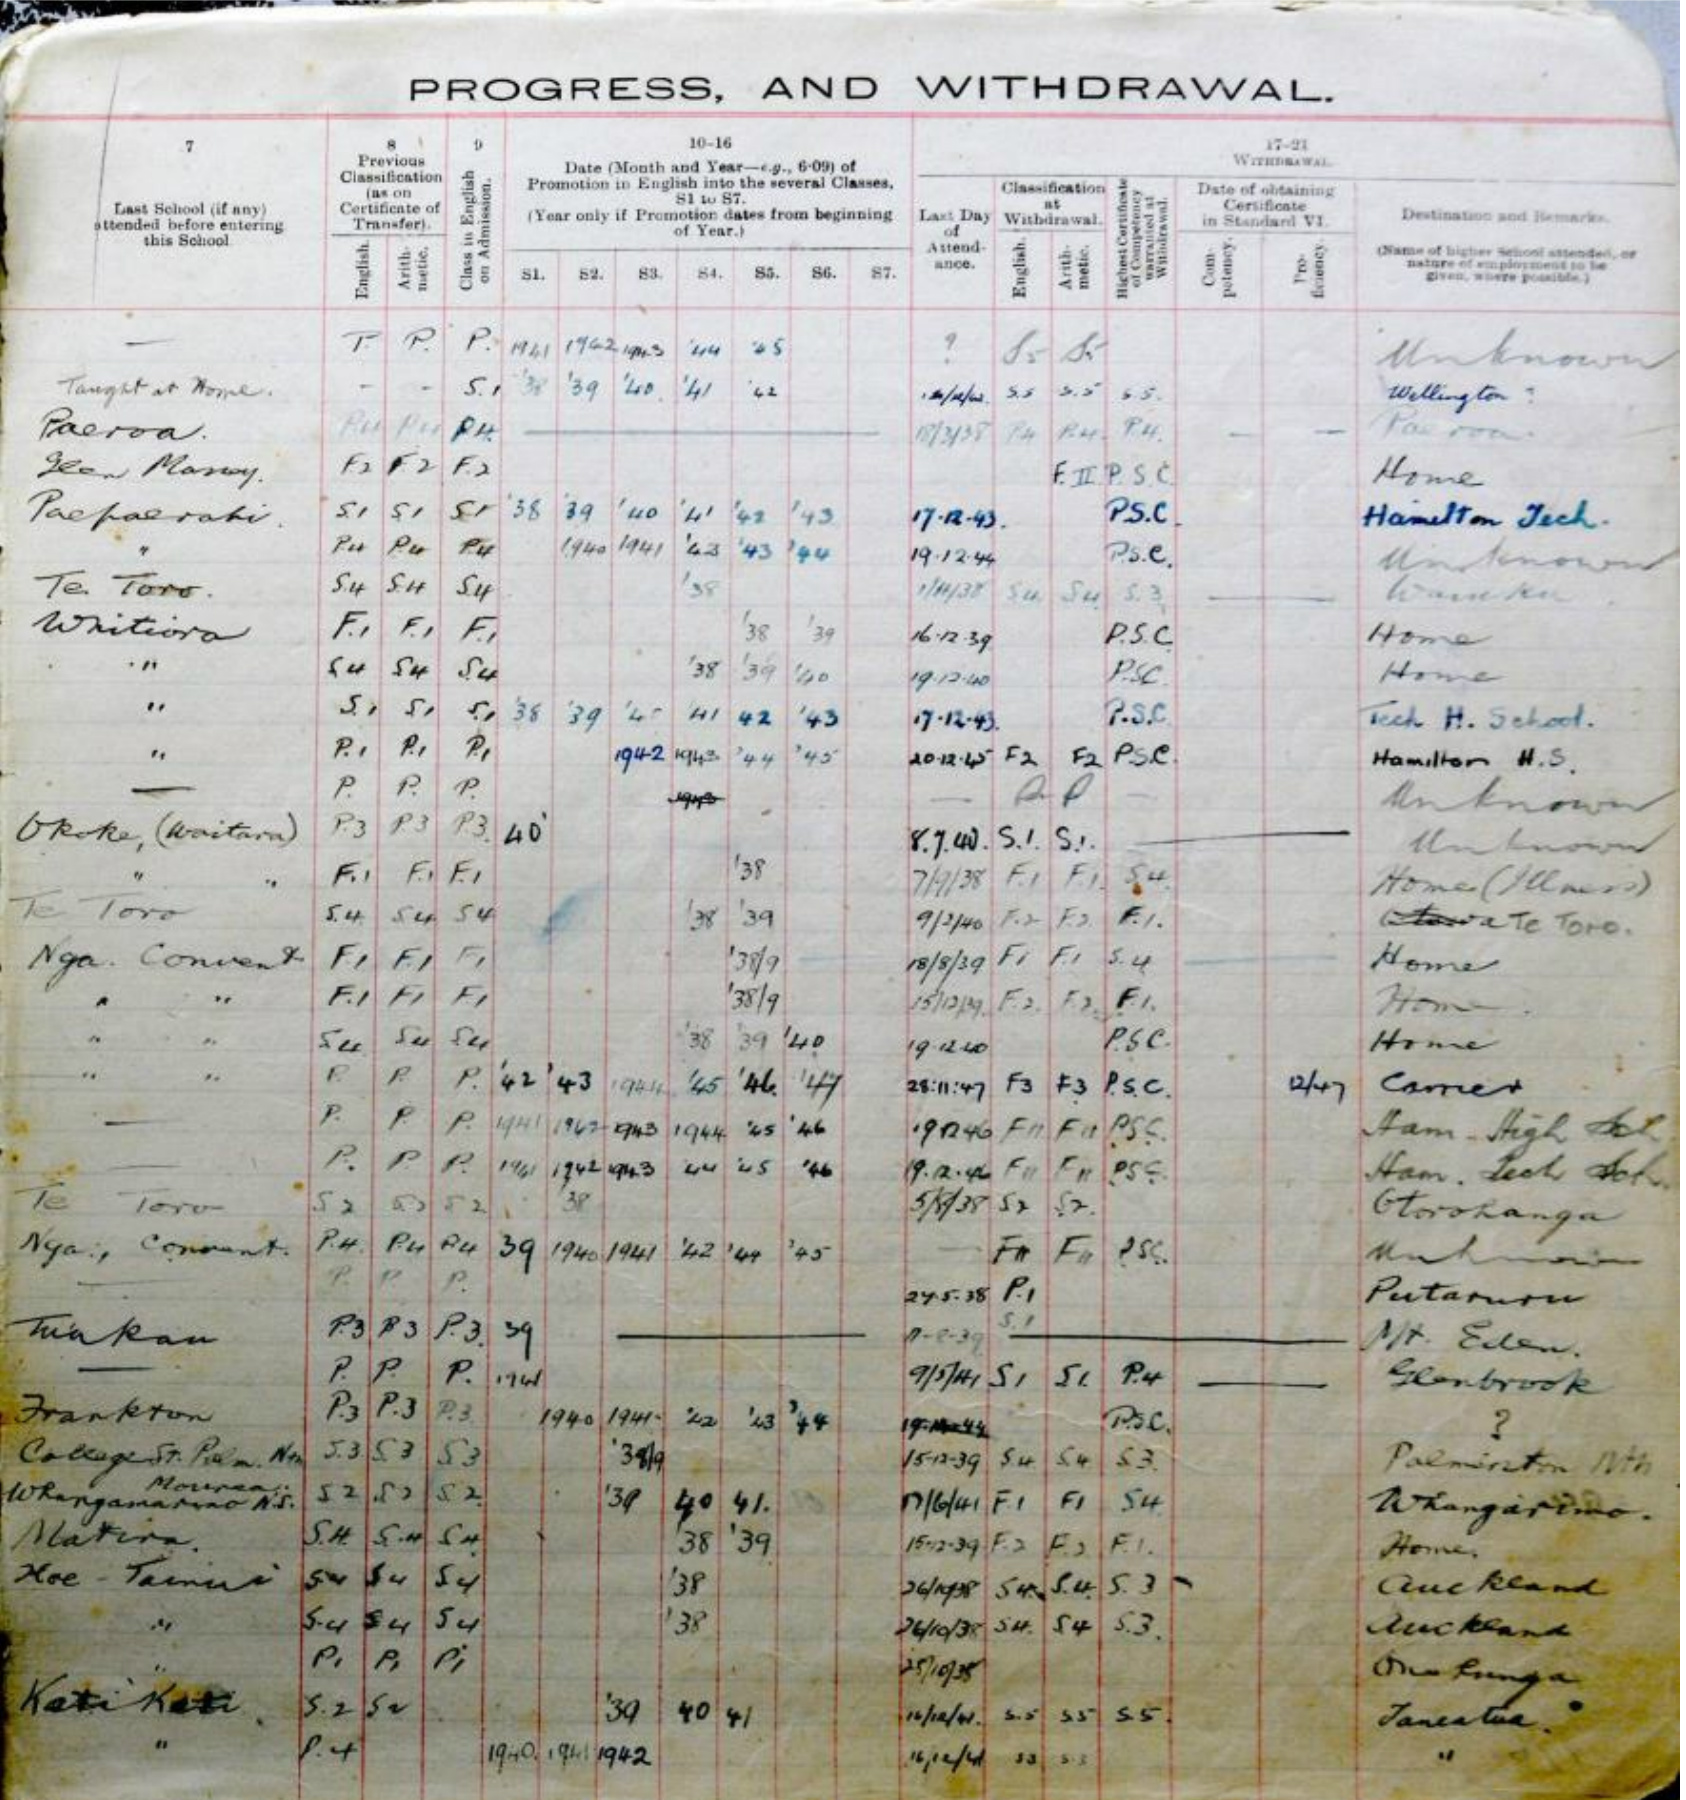 PROGRESS, AND WITHDRAWAL.
7
Last School (if any) attended before entering this School
8
Previous Classification (as on Certificate of Transfer).
English.
Arith-metic.
9
Class in English on Admission.
10-16
Date (Month and Year—e.g., 6·09) of Promotion in English into the several Classes, S1 to S7.
(Year only if Promotion dates from beginning of Year.)
S1. S2. S3. S4. S5. S6. S7.
17-21
WITHDRAWAL.
Last Day of Attend-ance.
Classification at Withdrawal.
English.
Arith-metic.
Highest Certificate of Competency warranted at Withdrawal.
Date of obtaining Certificate in Standard VI.
Com-petency.
Pro-ficiency.
Destination and Remarks.
(Name of higher School attended, or nature of employment to be given, where possible.)
— P. P. 1941 1942 1943 '44 '45 ? S5 S5 Unknown
Taught at Home. - - S.1 '38 '39 '40 '41 '42 S.5 S.5 S.5. Wellington ?
Paeroa. P4 P4 P4. 18/3/38 P4 P.4. P.4. — — Paeroa.
Glen Massey. F2 F2 F.2 F.II P.S.C. Home
S.1 S1 S1 '38 '39 '40 '41 '42 '43 17-12-43. P.S.C. Hamilton Tech.
" P4 P4 P4 1940 1941 '43 '44 19.12.44 P.S.C. Unknown
Te Toro. S4 S.4 S4 '38 S4 S4 S.3 —
Whitiora F.1 F.1 F.1 '38 '39 16.12.39 P.S.C. Home
" S4 S4 S4 '38 '39 '40 19.12.40 P.S.C. Home
" S.1 S1 S.1 '38 '39 '41 42 '43 17-12-43. P.S.C. Tech H. School.
" P.1 P.1 P.1 1942 1943 '44 '45 20.12.45 F2 F2 P.S.C. Hamilton H.S.
— P. P. P. — P — Unknown
Okoke, (Waitara) P.3 P3 P.3 40 8.7.40. S.1. S.1. — Unknown
" " F.1 F.1 F.1 '38 7/9/38 F.1 F.1. S4. Home (Illness)
Te Toro S.4 S4 S4 '38 '39 9/2/40 F.2 F.2 F.1. Te Toro.
Nga. Convent F1 F.1 F1 '38/9 18/8/39 F1 F.1 S.4 — Home
" " F.1 F1 F1 '38/9 15/12/39. F.2. F.2. F.1. Home.
" " S4 S4 S4 '38 '39 '40 19.12.40 P.S.C. Home
" " P. P. P. '42 '43 1944 '45 '46. '47 28:11:47 F3 F3 P.S.C. 12/47 Carrier
— P. P. P. 1941 1942 1943 1944 '45 '46 19.12.46 F11 F11 P.S.C. Ham. High Sch.
— P. P. P. 1941 1942 1943 '44 '45 '46 19.12.46 F11 F11 P.S.C. Ham. Tech Sch.
Te Toro S2 S2 S2 '38 S2 S2. Otorohanga
Nga., Convent. P.4. P.4 P4 39 1940 1941 '42 '44 '45 — F11 F11 P.S.C. Unknown
— P. P P. 27.5.38 P.1 Putaruru
Tuakau P.3 P3 P.3. 39 — S.1 — Mt. Eden.
— P. P. P. 1941 9/5/41 S1 S1. P.4 — Glenbrook
Frankton P.3 P.3 P.3. 1940 1941 '42 '43 '44 P.S.C. ?
College St. Palm. Nth S.3 S3 S3 '38/9 15-12-39 S4 S4 S3. Palmerston Nth
Whangamarino N.S. S2 S2 S2. '39 40 41. 17/6/41 F1 F1 S4
Matira. S.4. S.4 S4 '38 '39 15-12-39 F.2 F.2 F.1. Home.
Hoe-Tainui S4 S4 S4 '38 26/10/38 S4. S.4. S.3 Auckland
" S.4 S4 S4 '38 26/10/38 S4. S4 S.3. Auckland
" P1 P1 P1 25/10/38 Onehunga
Kati Kati. S.2 S2 '39 40 41 S.5 S5 S5. Taneatua.
" P.4 1940. 1941 1942 S3 S.3 "